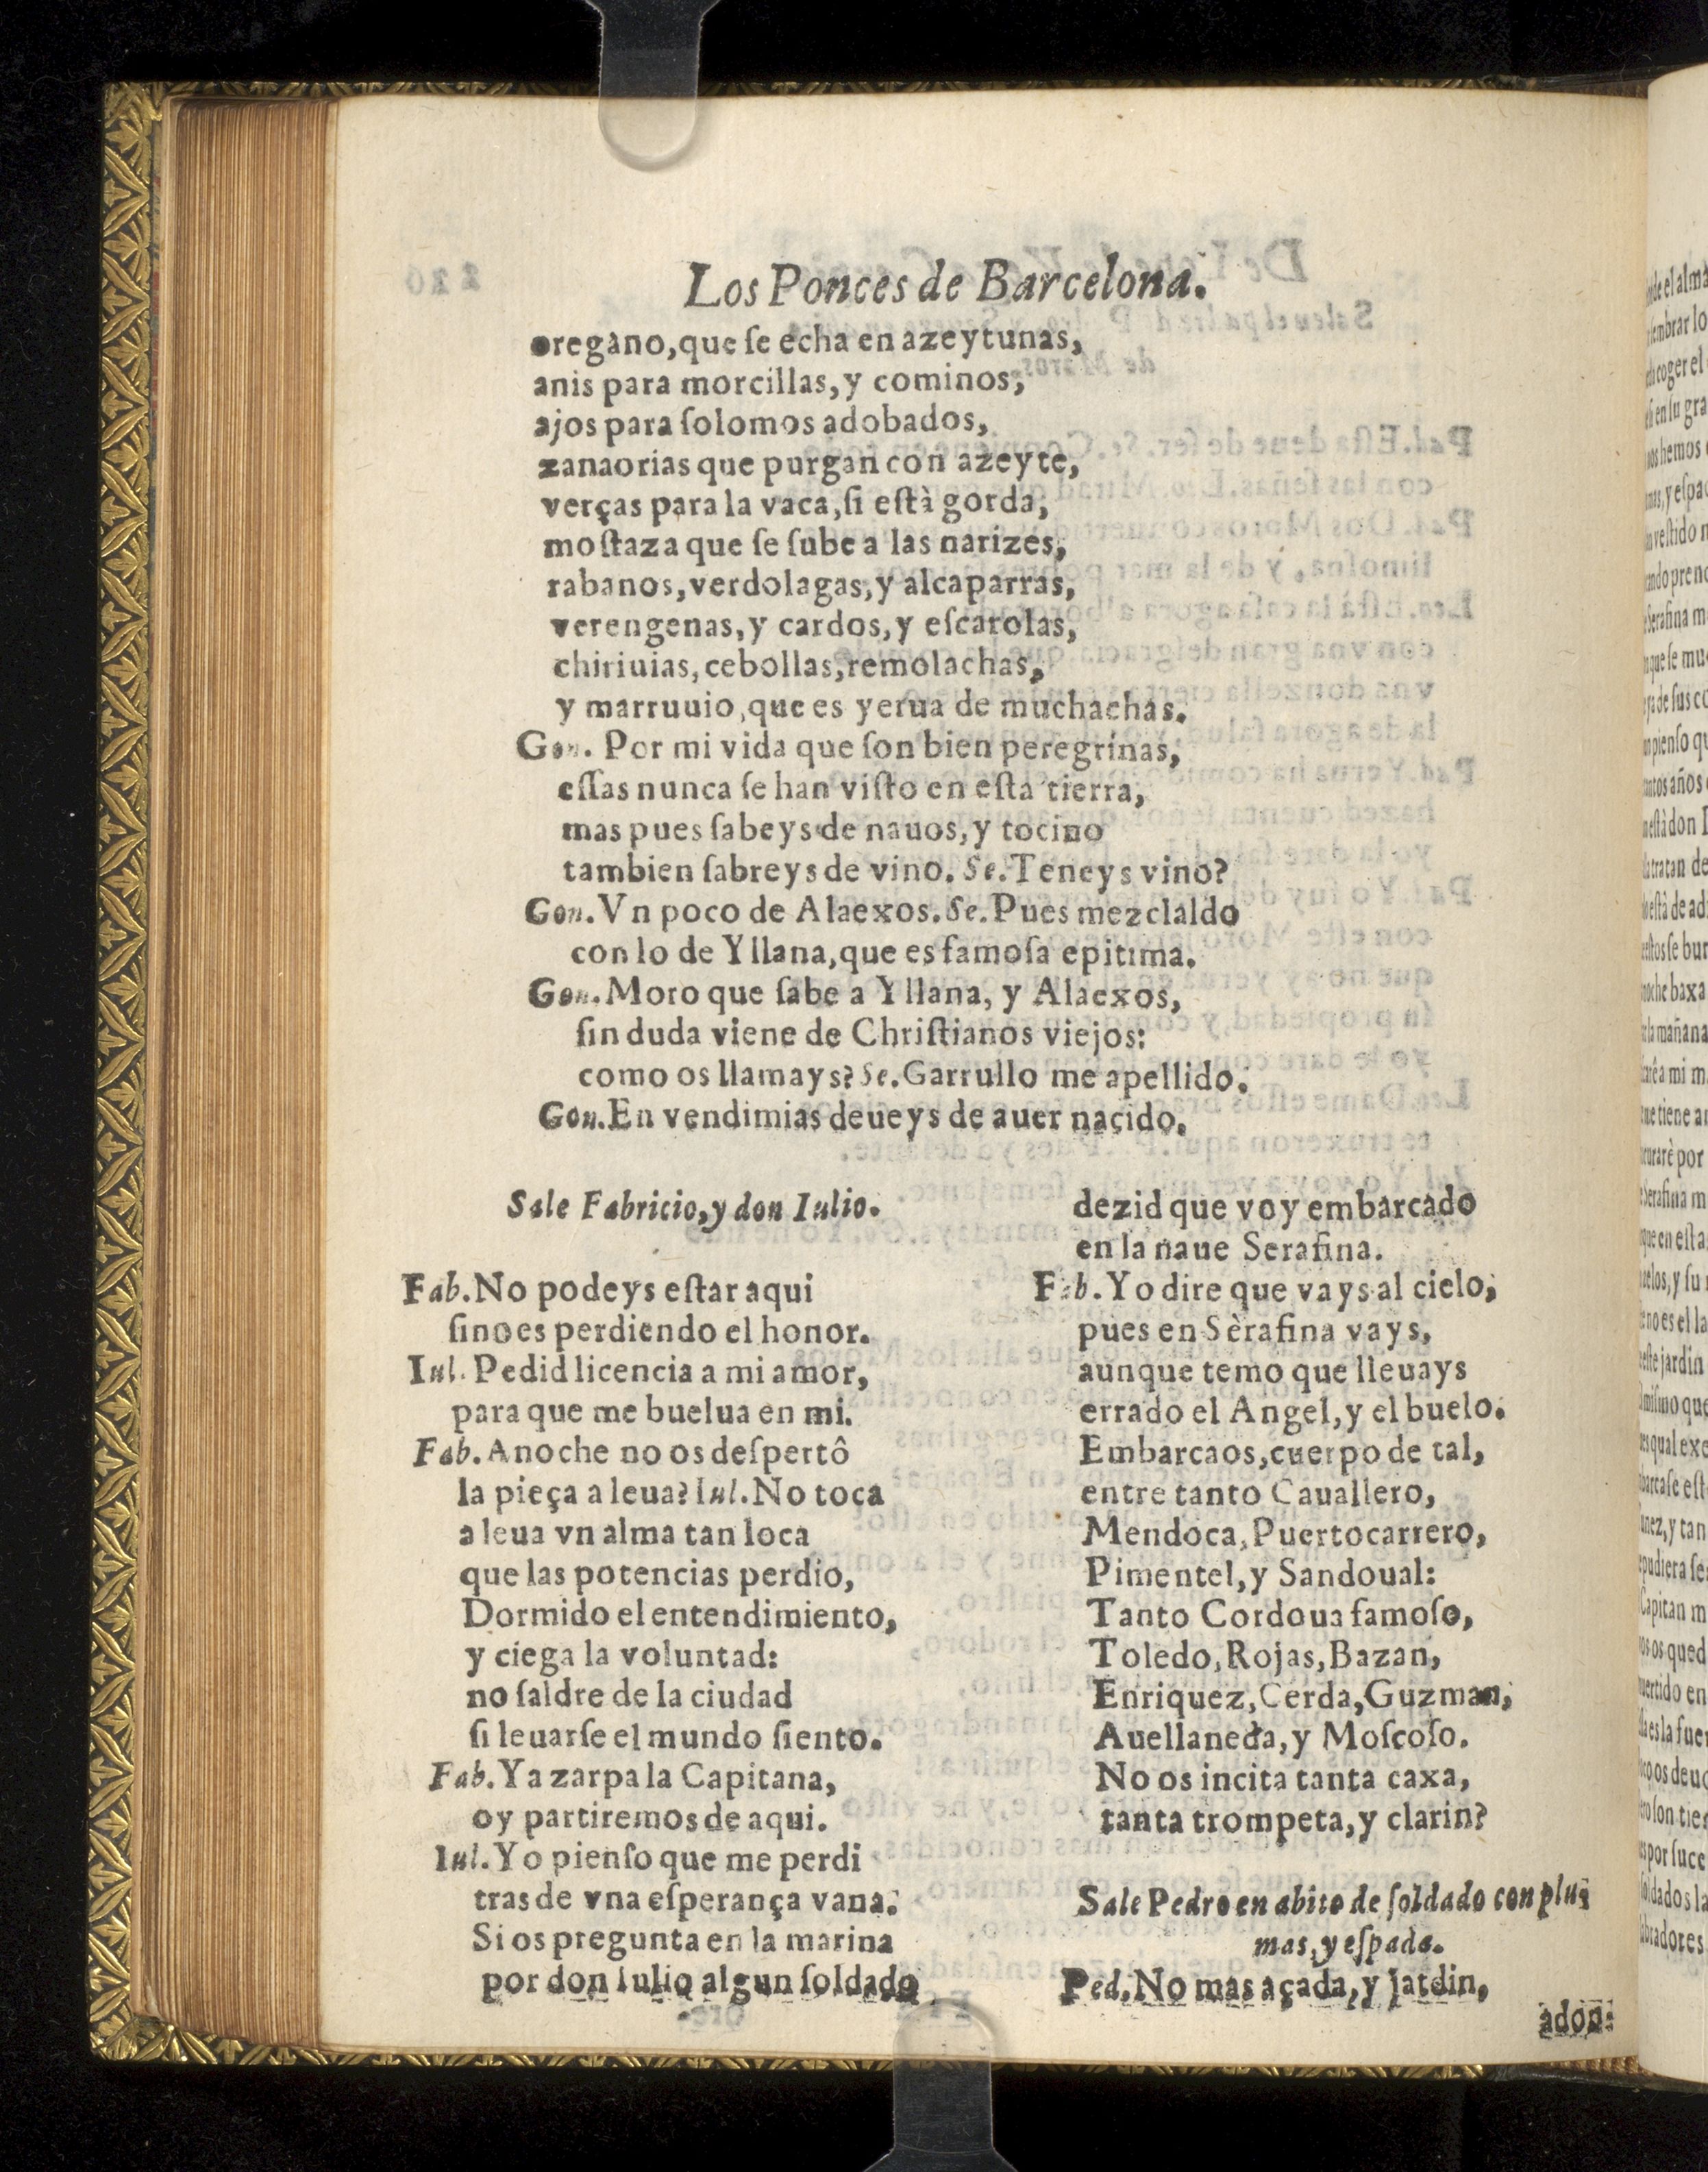 Los Ponces de Barcelona.
oregano, que ſe echa en azeytunas,
anis para morcillas, y cominos,
ajos para ſolomos adobados,
zanaorias que purgan con azeyte,
verças para la vaca, ſi eſtà gorda,
moſtaza que ſe ſube a las narizes,
rabanos, verdolagas, y alcaparras,
verengenas, y cardos, y eſcarolas,
chiriuias, cebollas, remolachas,
y marruuio, que es yerua de muchachas.
Gon. Por mi vida que ſon bien peregrinas,
eſſas nunca ſe han viſto en eſta tierra,
mas pues ſabeys de nauos, y tocino
tambien ſabreys de vino. Se. Teneys vino?
Gon. Vn poco de Alaexos. Se. Pues mezclaldo
con lo de Yllana, que es famoſa epitima.
Gon. Moro que ſabe a Yllana, y Alaexos,
ſin duda viene de Chriſtianos viejos:
como os llamays? Se. Garrullo me apellido.
Gon. En vendimias deueys de auer nacido.
Sale Fabricio, y don Iulio.
Fab. No podeys eſtar aqui
ſino es perdiendo el honor.
Iul. Pedid licencia a mi amor,
para que me buelua en mi.
Fab. Anoche no os deſpertô
la pieça a leua? Iul. No toca
a leua vn alma tan loca
que las potencias perdio,
Dormido el entendimiento,
y ciega la voluntad:
no ſaldre de la ciudad
ſi leuarſe el mundo ſiento.
Fab. Ya zarpa la Capitana,
oy partiremos de aqui.
Iul. Yo pienſo que me perdi
tras de vna eſperança vana.
Si os pregunta en la marina
por don Iulio algun ſoldado
dezid que voy embarcado
en la naue Serafina.
Fab. Yo dire que vays al cielo,
pues en Sèrafina vays,
aunque temo que lleuays
errado el Angel, y el buelo.
Embarcaos, cuerpo de tal,
entre tanto Cauallero,
Mendoca, Puertocarrero,
Pimentel, y Sandoual:
Tanto Cordoua famoſo,
Toledo, Rojas, Bazan,
Enriquez, Cerda, Guzman,
Auellaneda, y Moſcoſo.
No os incita tanta caxa,
tanta trompeta, y clarin?
Sale Pedro en abito de ſoldado con plu-
mas, y eſpada.
Ped. No mas açada, y Jatdin,
adon-